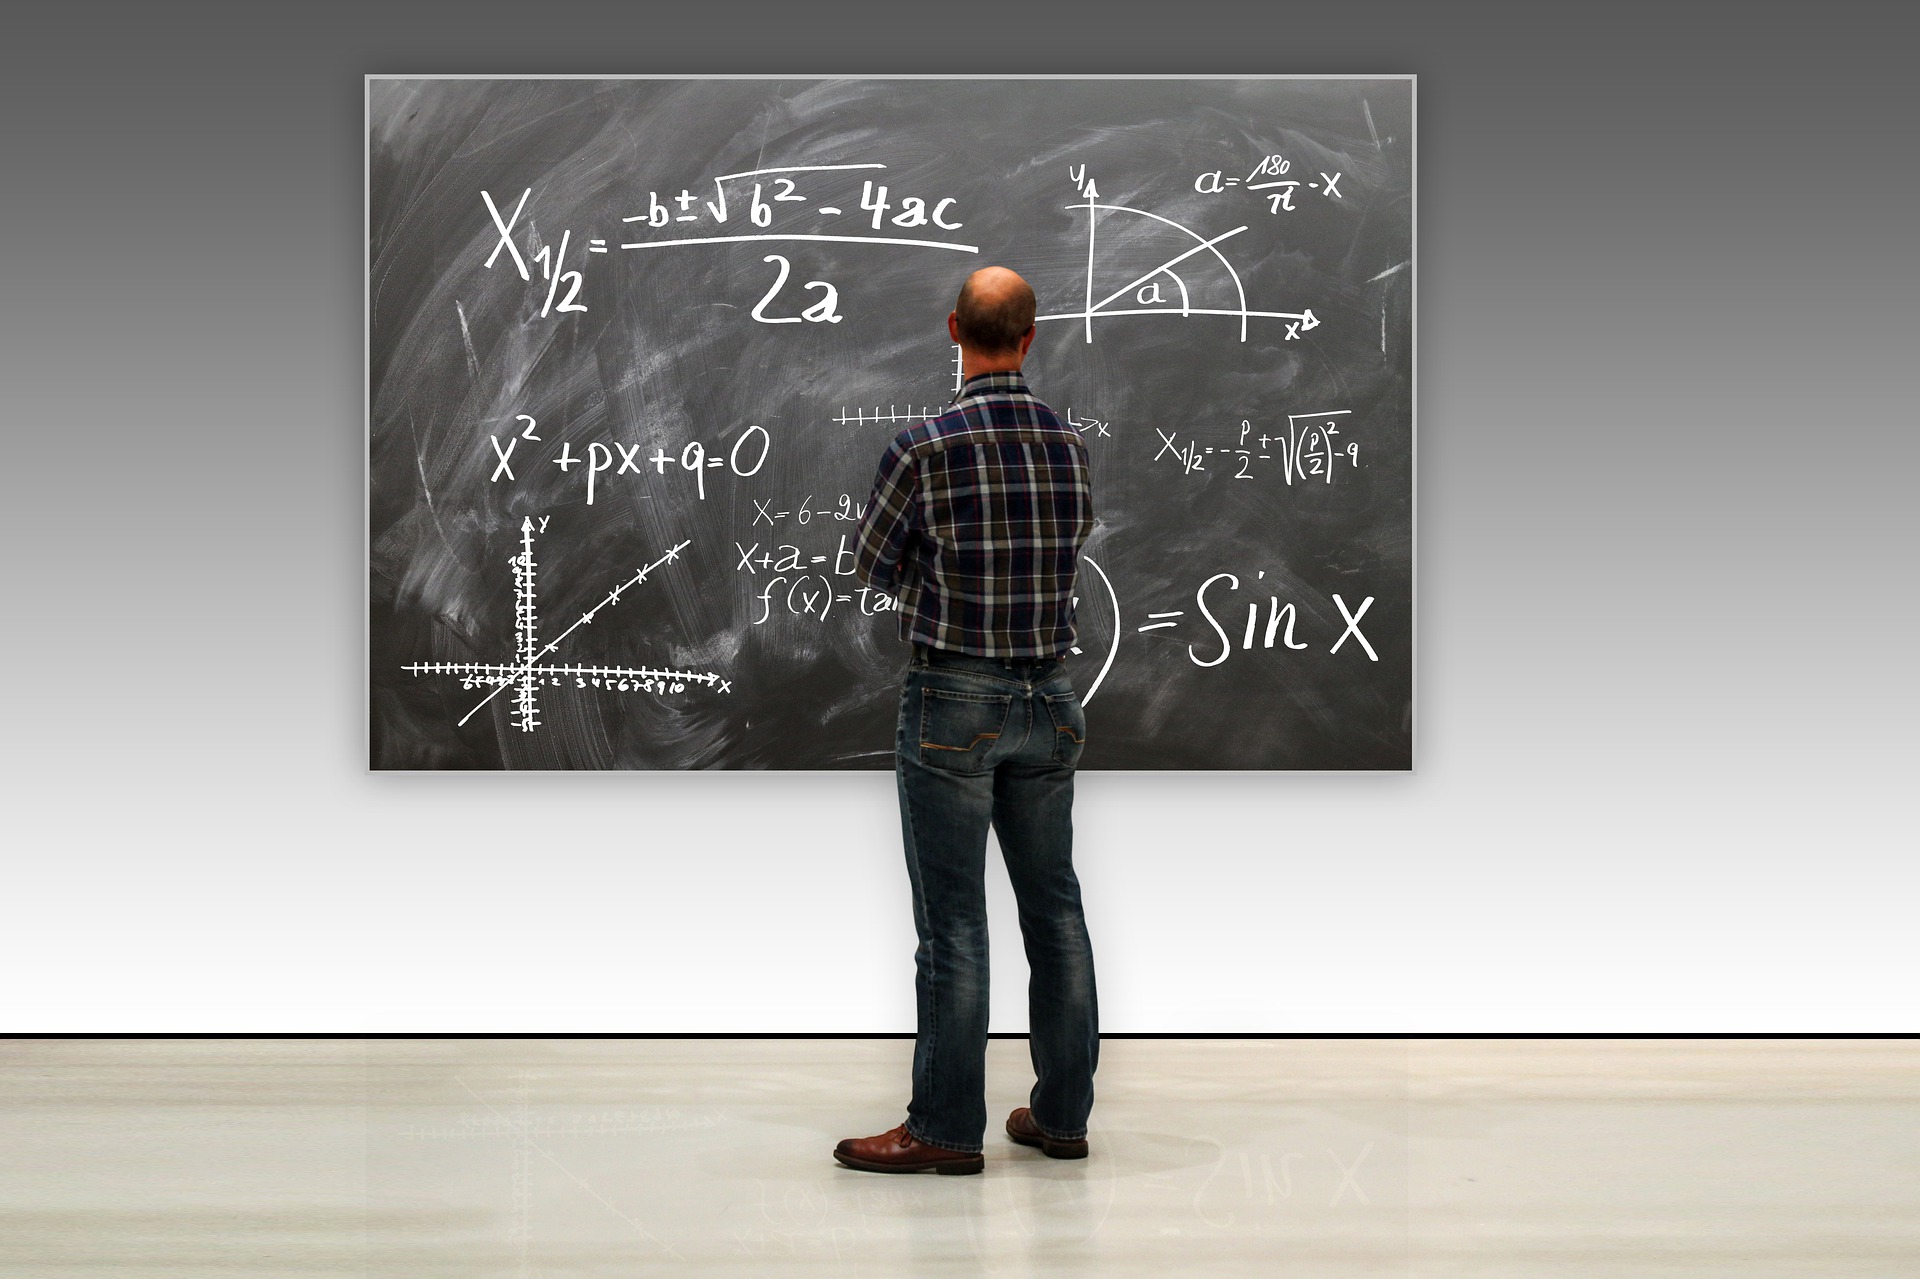 X1/2 = -b±√b² - 4ac / 2a
y
a = 180/π · x
a
x
x
x² + px + q = 0
X1/2 = -p/2 ± √(p/2)² - q
x = 6 - 2
y
x + a = b
f(x) = tan
) = Sin x
6 5 4 3 2 1 2 3 4 5 6 7 8 9 10 x